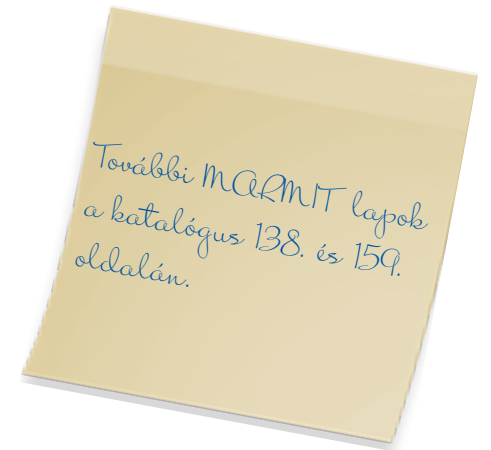 További MARMIT lapok
a katalógus 138. és 159.
oldalán.